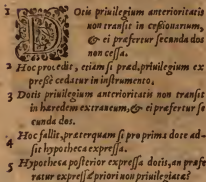 1 Dotis priuilegium anterioritatis
non transit in cessionarium,
& ei præfertur secunda dos
non cessa.
2 Hoc procedit, etiam si præd. priuilegium ex
presse cedatur in instrumento.
3 Dotis priuilegium anterioritatis non transit
in hæredem extraneum, & ei præfertur se
cunda dos.
4 Hoc fallit, præterquam si pro prima dote ad-
sit hypotheca expressa.
5 Hypotheca posterior expressa dotis, an præfe
ratur expressæ priori non priuilegiatæ?